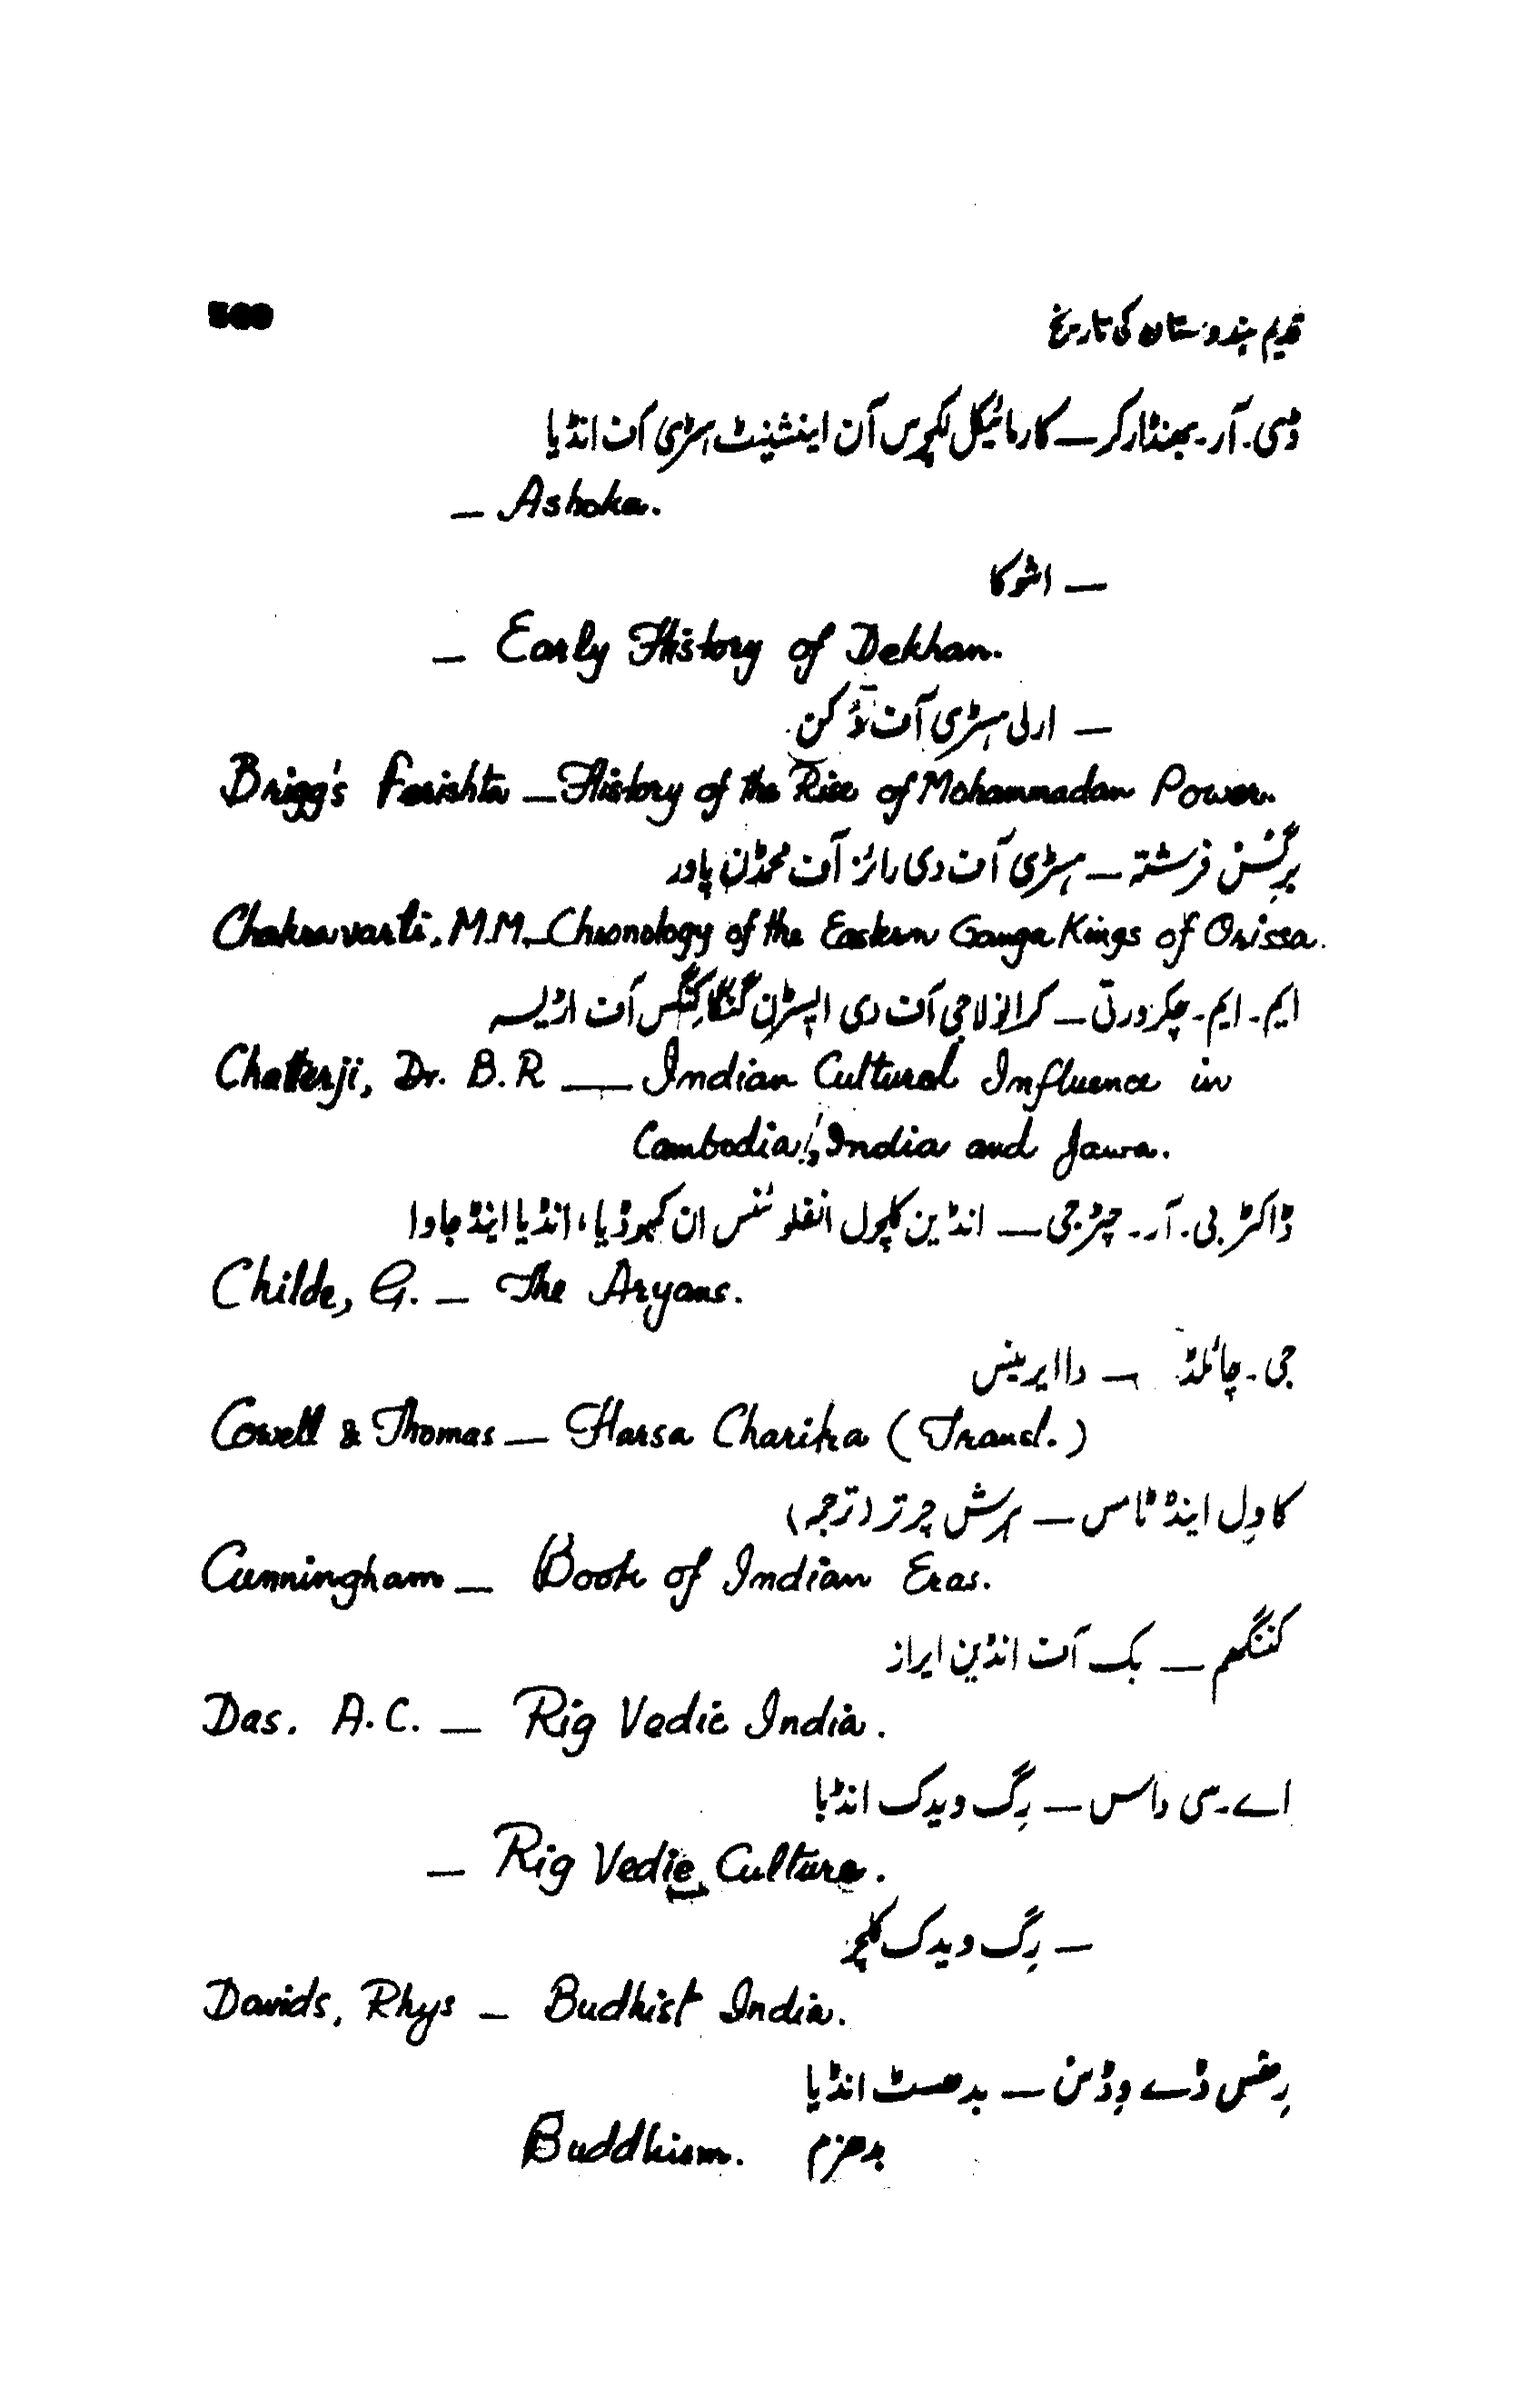 قدیم ہندوستان کی تاریخ
ڈی۔ آر۔ بھنڈارکر ـ کارمائیکل لکچرس آن اینشینٹ ہسٹری آف انڈیا
– Ashoka.
– اشوکا
– Early History of Dekhan.
– ارلی ہسٹری آف دکن
Brigg's Ferishta – History of the Rise of Mohammadan Power.
برگسن فرشتہ – ہسٹری آف دی رائز آف محمڈن پاور
Chakravarti, M.M. – Chronology of the Eastern Ganga Kings of Orissa.
ایم۔ ایم۔ چکرورتی – کرانولاجی آف دی ایسٹرن گنگا کنگس آف اڑیسہ
Chatterji, Dr. B.R – Indian Cultural Influence in
Cambodia, India and Jawa.
ڈاکٹر بی۔ آر۔ چٹرجی – انڈین کلچرل انفلوئنس ان کمبوڈیا، انڈیا اینڈ جاوا
Childe, G. – The Aryans.
جی۔ چائلڈ – دا ایرینس
Cowell & Thomas – Harsa Charita (Transl.)
کاوِل اینڈ ٹامس – ہرش چرتر (ترجمہ)
Cunningham – Book of Indian Eras.
کننگھم – بک آف انڈین ایراز
Das. A.C. – Rig Vedic India.
اے۔ سی داس – رِگ ویدک انڈیا
– Rig Vedic Culture.
– رِگ ویدک کلچر
Davids, Rhys – Budhist India.
رِھس ڈے وِڈس – بدھسٹ انڈیا
Buddhism. بدھزم